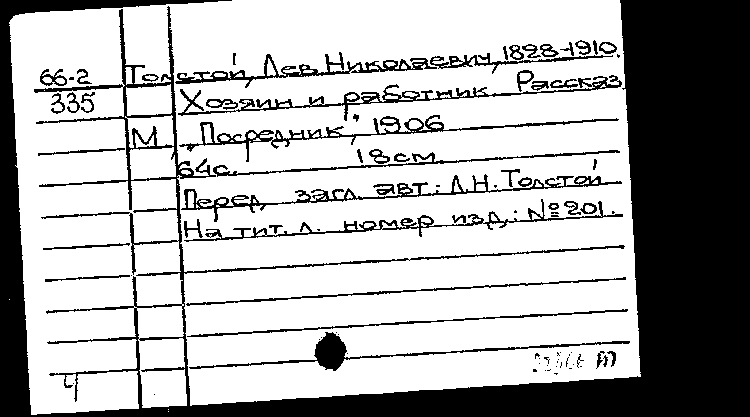 66-2 Толстой, Лев Николаевич, 1828-1910.
335 Хозяин и работник. Рассказ
М., "Посредник", 1906
64с. 18см.
Перед загл. авт.: Л.Н. Толстой
На тит. л. номер изд.: №201.
Ч